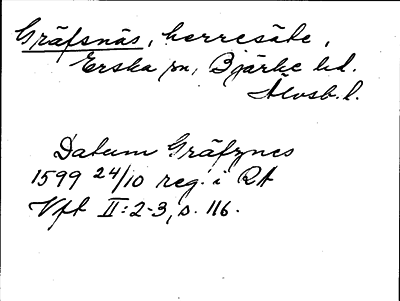 Gräfsnäs, herresäte,
Erska sn, Bjärke hd.
Älvsb. l.
Datum Gräfznes
1599 24/10 reg. i RA
Vft II:2-3, s. 116.